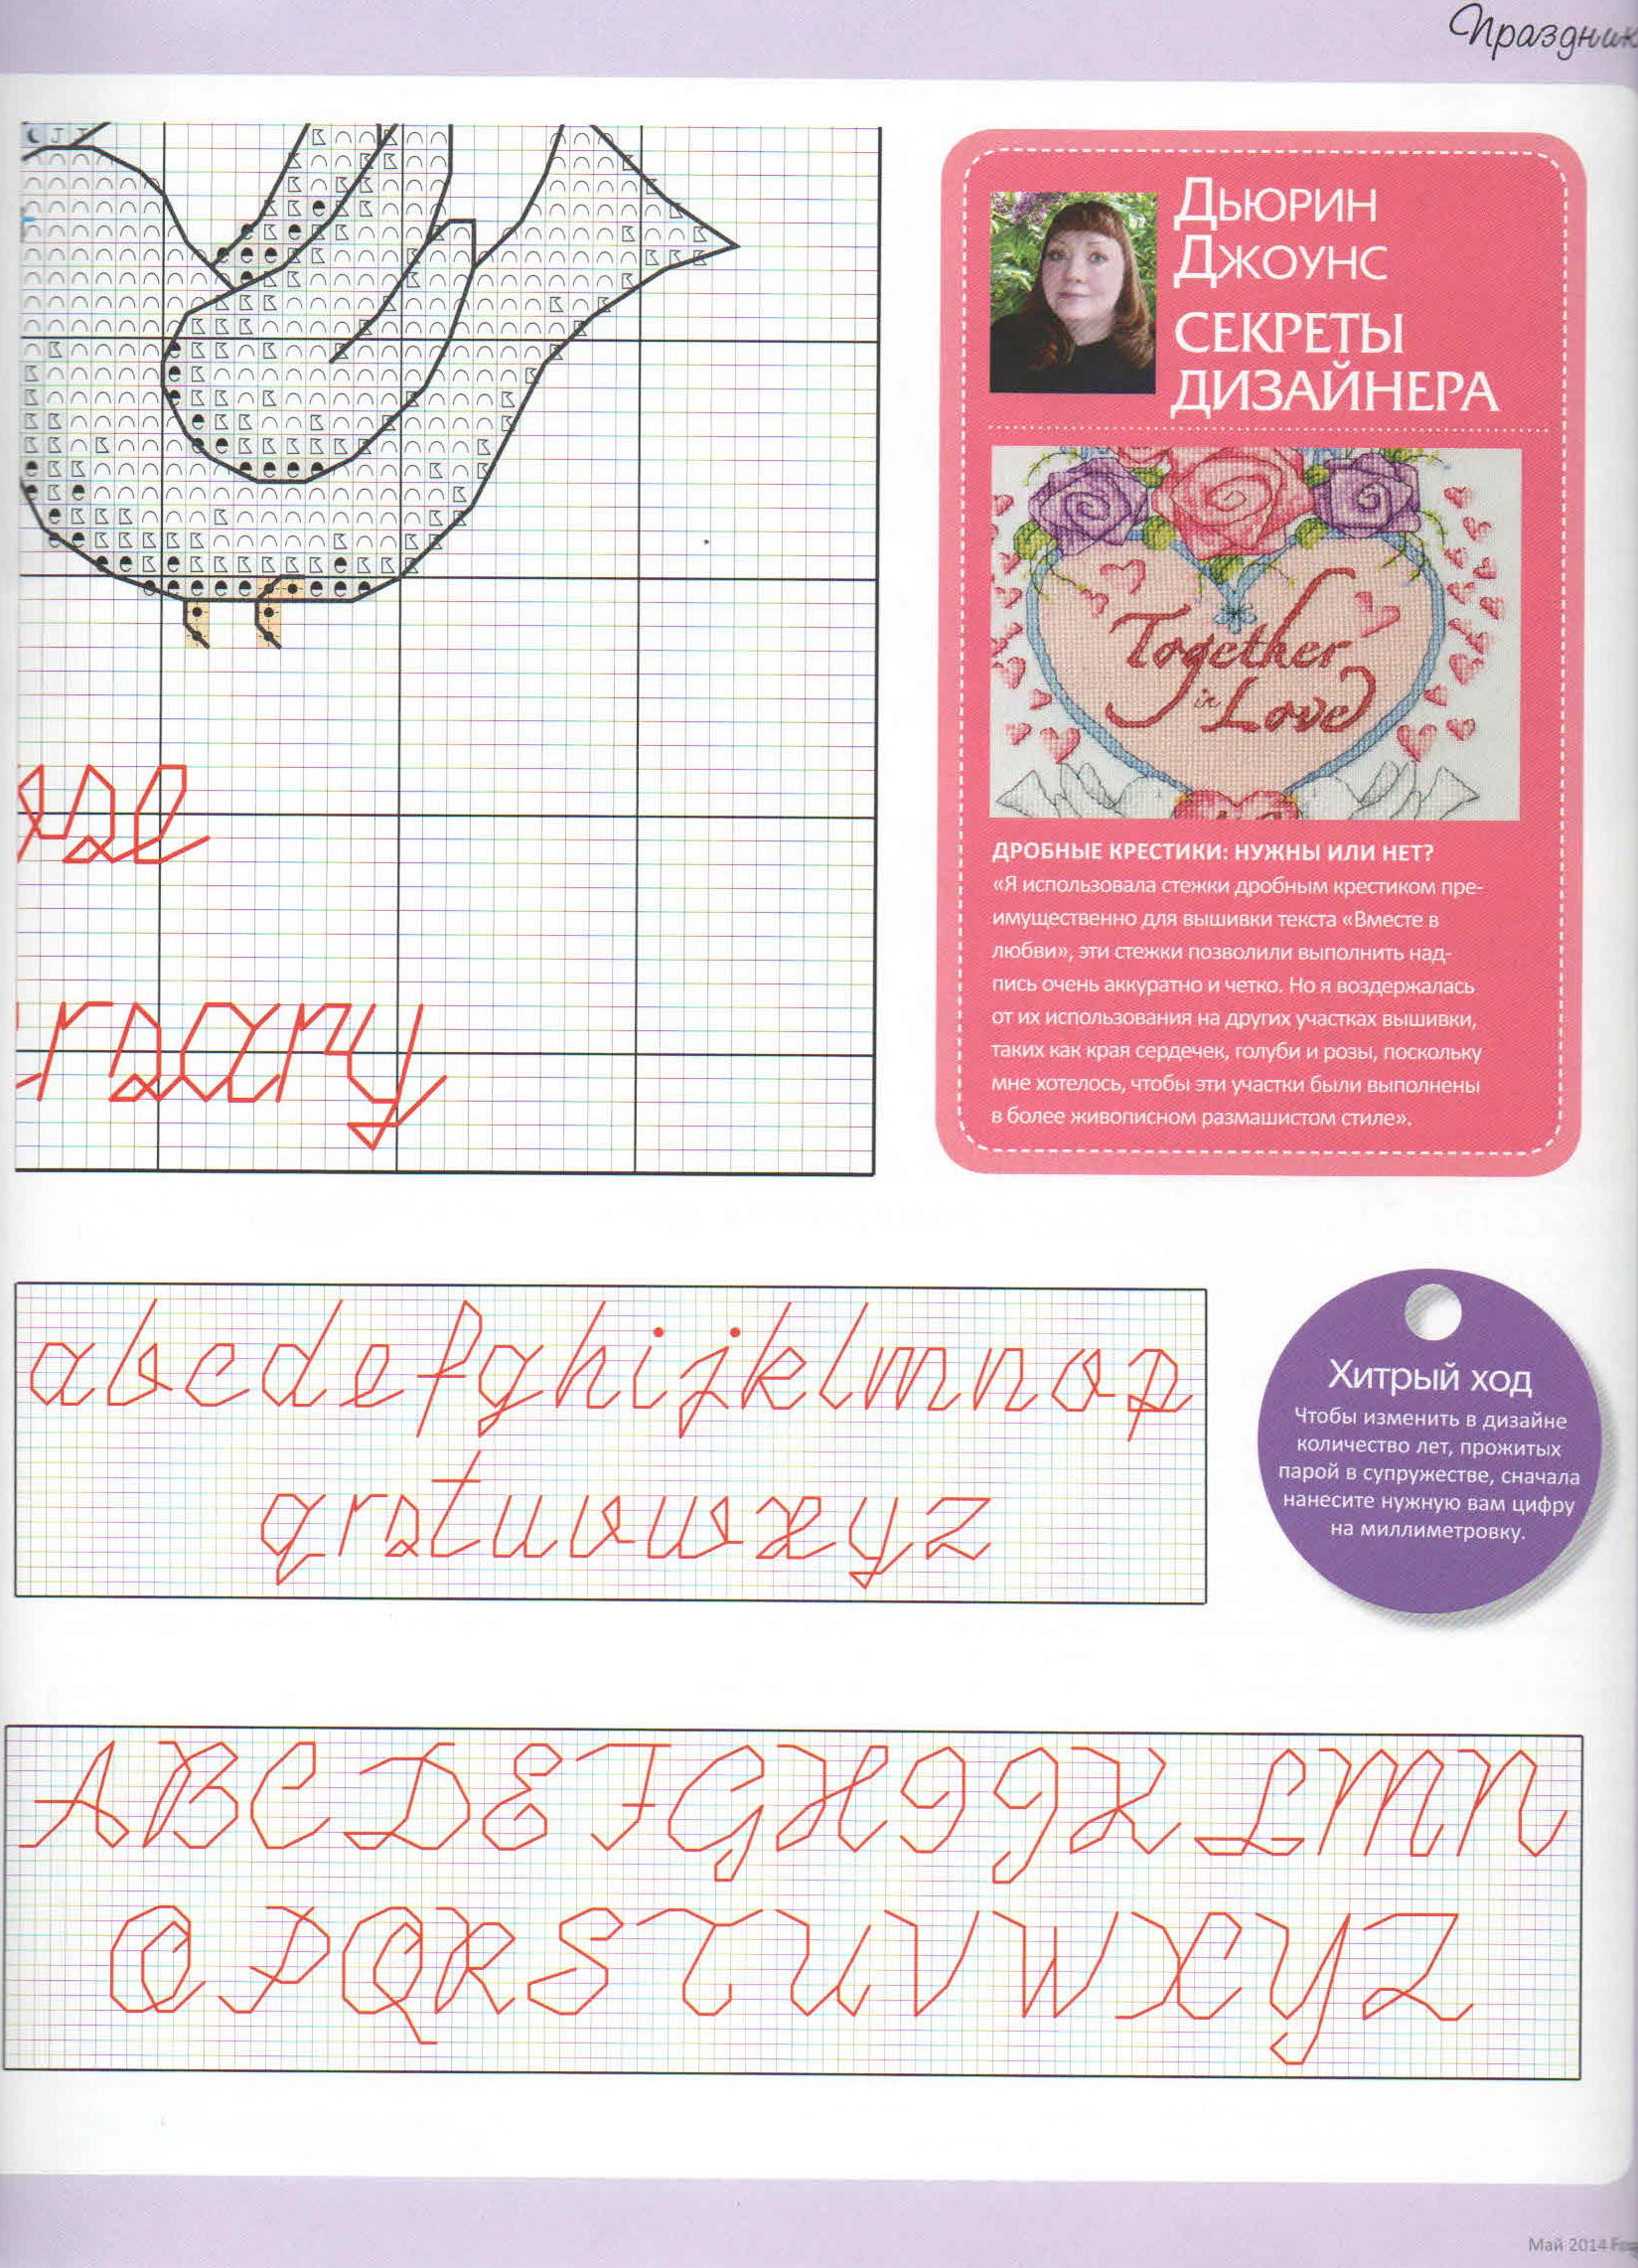 Праздник
ДЬЮРИН
ДЖОУНС
СЕКРЕТЫ
ДИЗАЙНЕРА
Together
in Love
ДРОБНЫЕ КРЕСТИКИ: НУЖНЫ ИЛИ НЕТ?
«Я использовала стежки дробным крестиком пре-
имущественно для вышивки текста «Вместе в
любви», эти стежки позволили выполнить над-
пись очень аккуратно и четко. Но я воздержалась
от их использования на других участках вышивки,
таких как края сердечек, голуби и розы, поскольку
мне хотелось, чтобы эти участки были выполнены
в более живописном размашистом стиле».
rsary
abcdefghijklmnop
qrstuvwxyz
Хитрый ход
Чтобы изменить в дизайне
количество лет, прожитых
парой в супружестве, сначала
нанесите нужную вам цифру
на миллиметровку.
ABCDEFGHIJKLMN
OPQRSTUVWXYZ
Май 2014